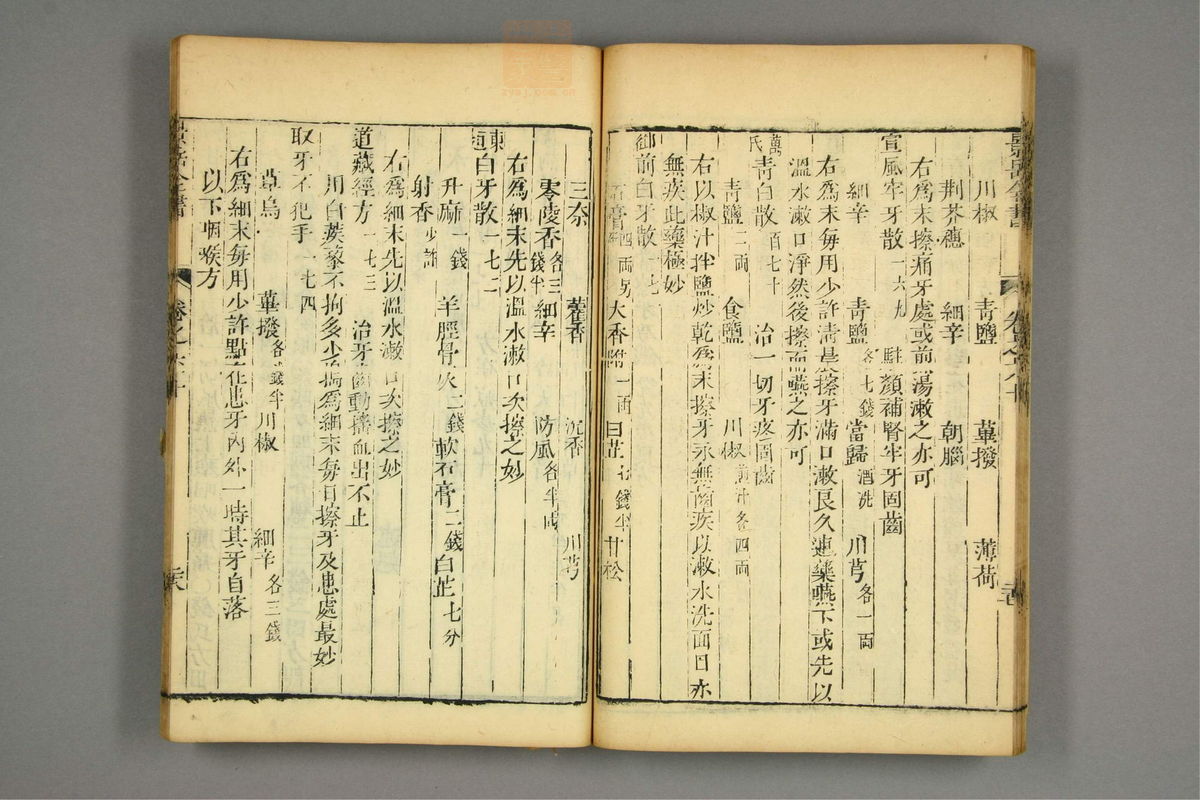 川椒 青鹽 蓽撥 薄荷
荆芥穗 細辛 朝腦
右爲末擦痛牙處或煎湯漱之亦可
宣風牢牙散一六九 駐顏補腎牢牙固齒
細辛 青鹽各七錢 當歸酒洗 川芎各一兩
右爲末每用少許清晨擦牙滿口漱良久連藥嚥下或先以
溫水漱口淨然後擦而嚥之亦可
萬氏青白散百七十 治一切牙疼固齒
青鹽二兩 食鹽 川椒煎汁各四兩
右以椒汁拌鹽炒乾爲末擦牙永無齒疾以漱水洗面目亦
無疾此藥極妙
御前白牙散一七
石膏四兩另 大香附一兩 白芷七錢半 甘松
三柰 藿香 沉香 川芎
零陵香各三錢半 細辛 防風各半兩
右爲細末先以溫水漱口次擦之妙
東垣白牙散一七二
升麻一錢 羊脛骨灰二錢 軟石膏二錢 白芷七分
射香少許
右爲細末先以溫水漱口次擦之妙
道藏經方一七三 治牙齒動搖血出不止
用白蒺藜不拘多少爲細末每日擦牙及患處最妙
取牙不犯手一七四
草烏 蓽撥各錢半 川椒 細辛各三錢
右爲細末每用少許點在患牙內外一時其牙自落
以下咽喉方
景岳全書